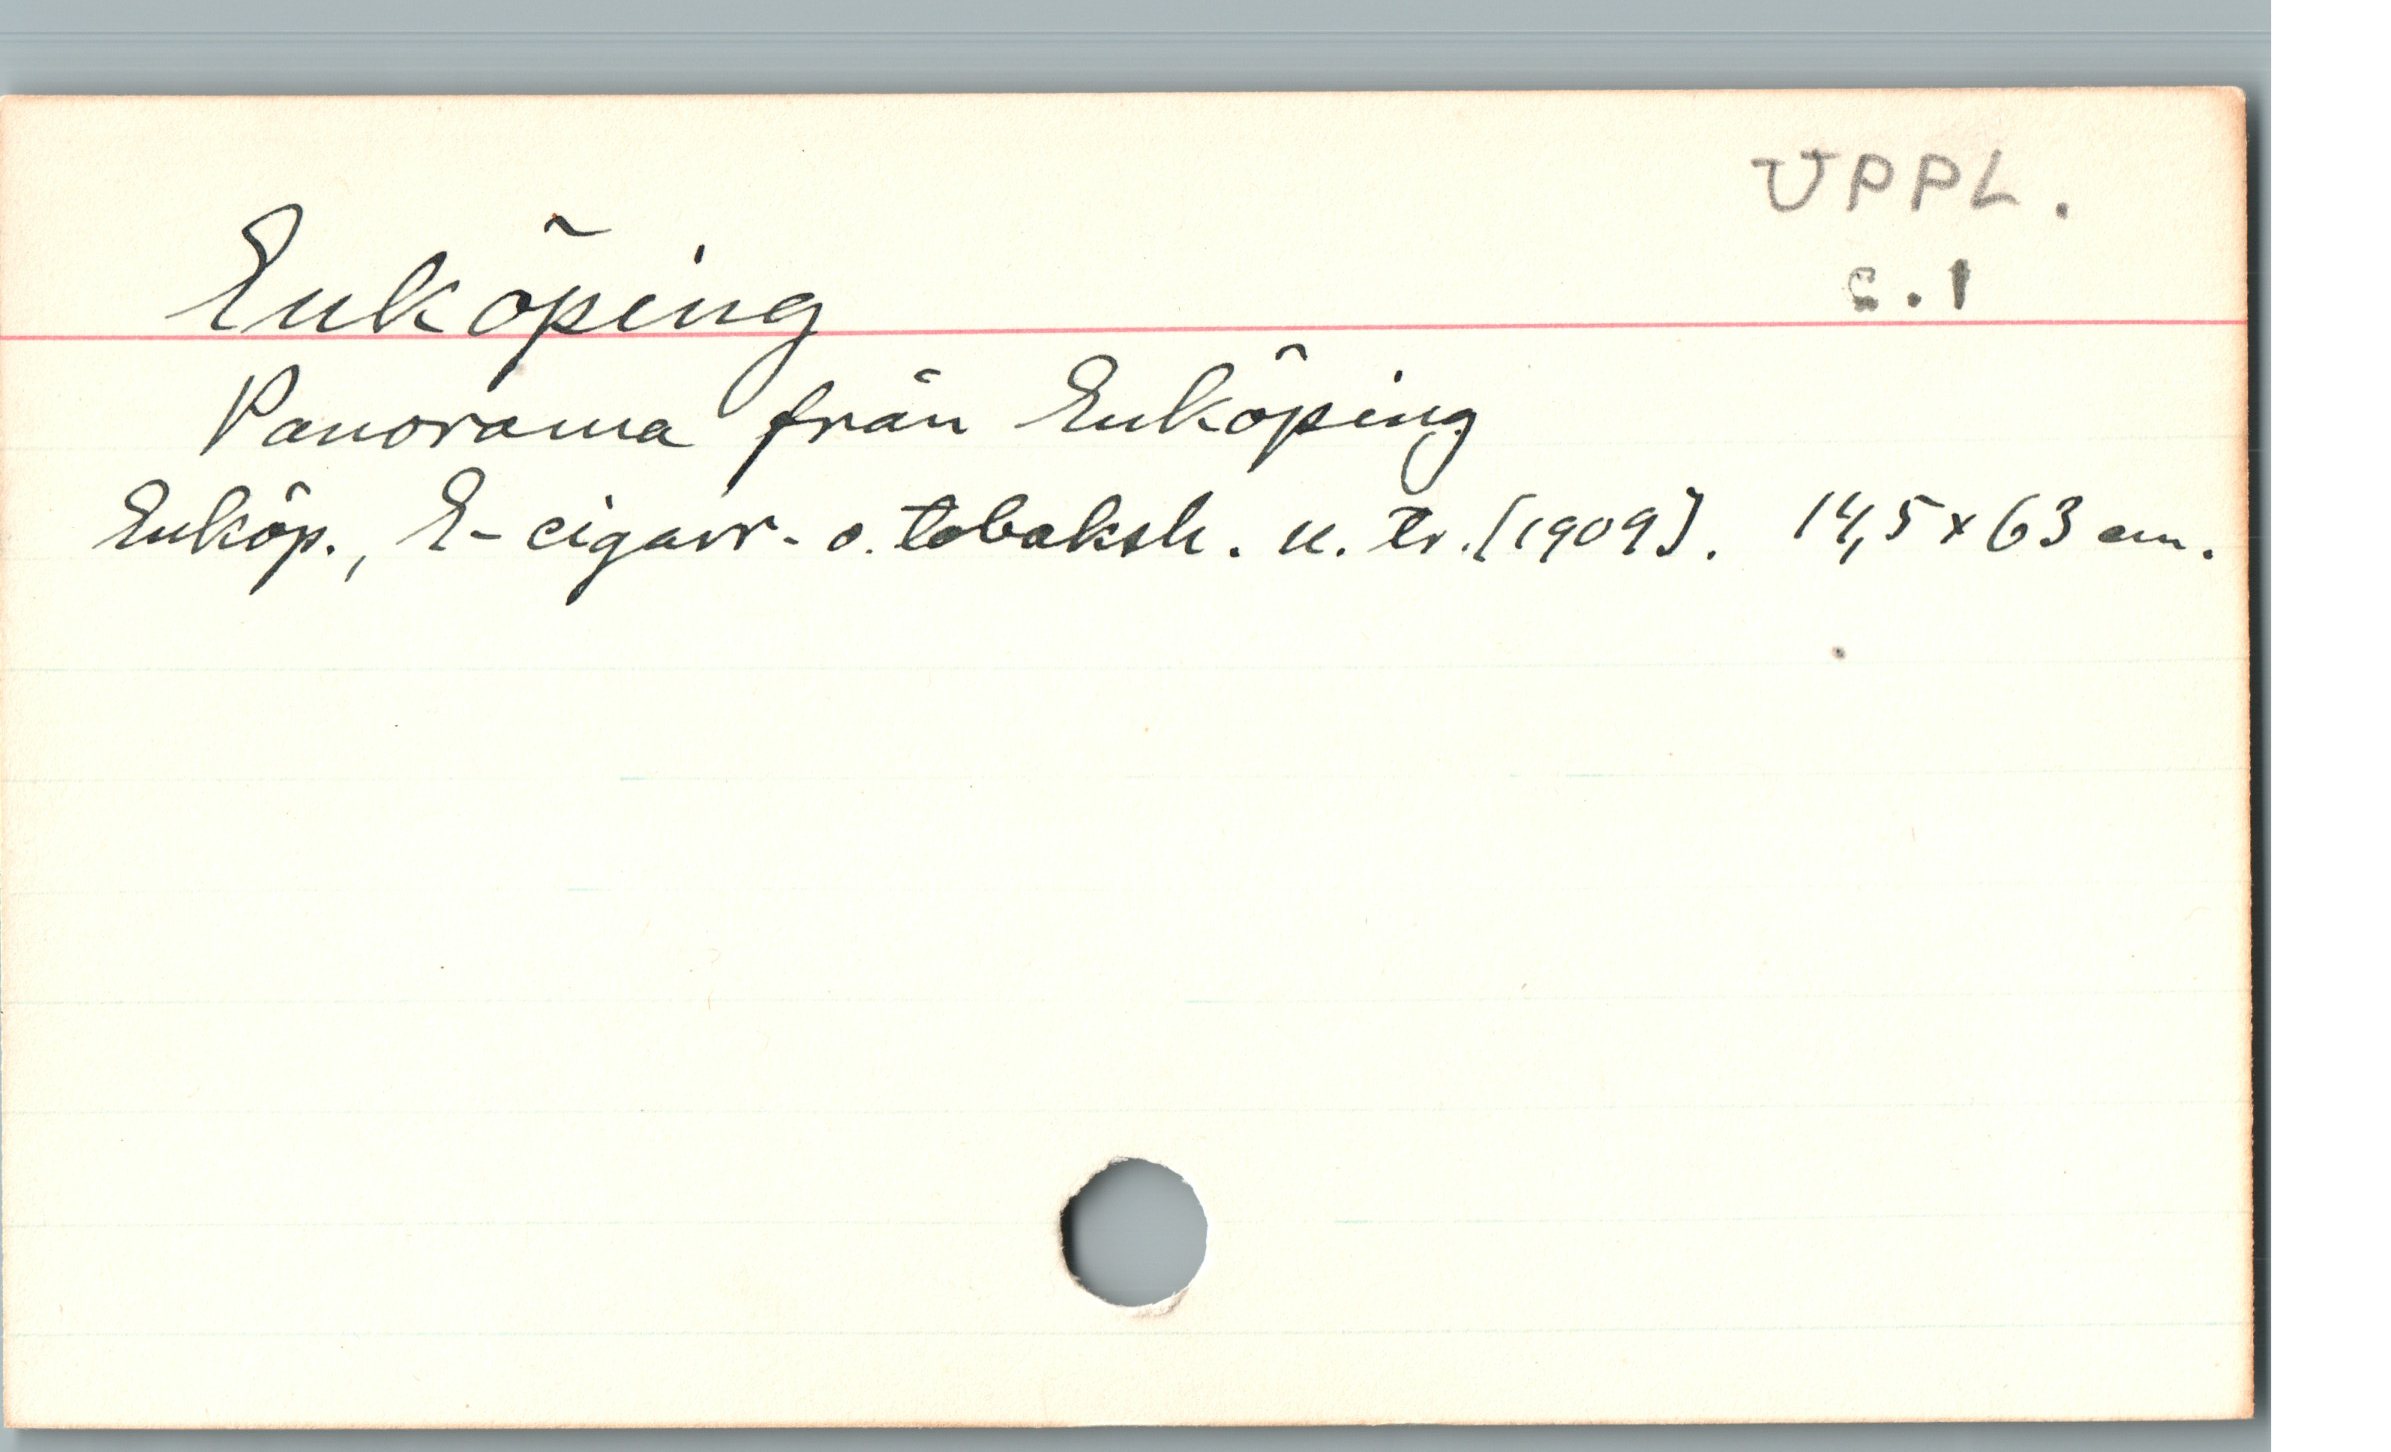 UPPL.
c.1
Enköping
Panorama från Enköping
Enköp., E-cigarr- o. tobaksh. u. tr. [1909]. 14,5 x 63 cm.